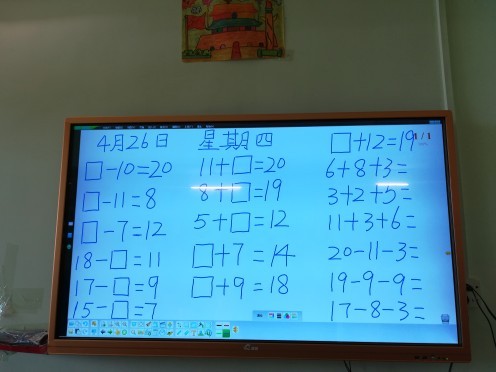 4月26日 星期四
□-10=20
□-11=8
□-7=12
18-□=11
17-□=9
15-□=7
11+□=20
8+□=19
5+□=12
□+7=14
□+9=18
□+12=19
6+8+3=
3+2+5=
11+3+6=
20-11-3=
19-9-9=
17-8-3=
1/1